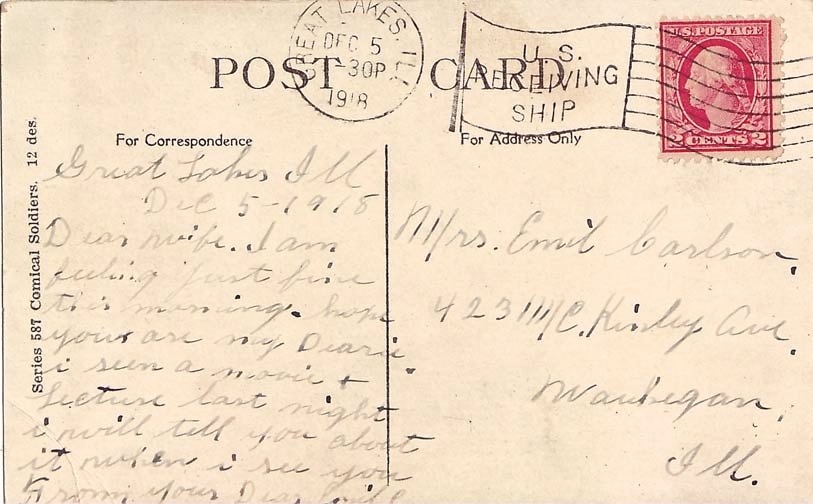 GREAT LAKES, ILL.
DEC 5
-30P
1918
U.S.
RECEIVING
SHIP
U.S. POSTAGE
2 CENTS 2
POST CARD
For Correspondence
For Address Only
Series 587 Comical Soldiers. 12 des.
Great Lakes Ill
Dec 5-1918
Dear wife. I am
feeling just fine
this morning. hope
you are my Dearie.
i seen a movie +
Lecture last night
i will tell you about
it when i see you
From your Dear Emil
Mrs. Emil Carlson,
423 McKinley Ave.
Waukegan,
Ill.